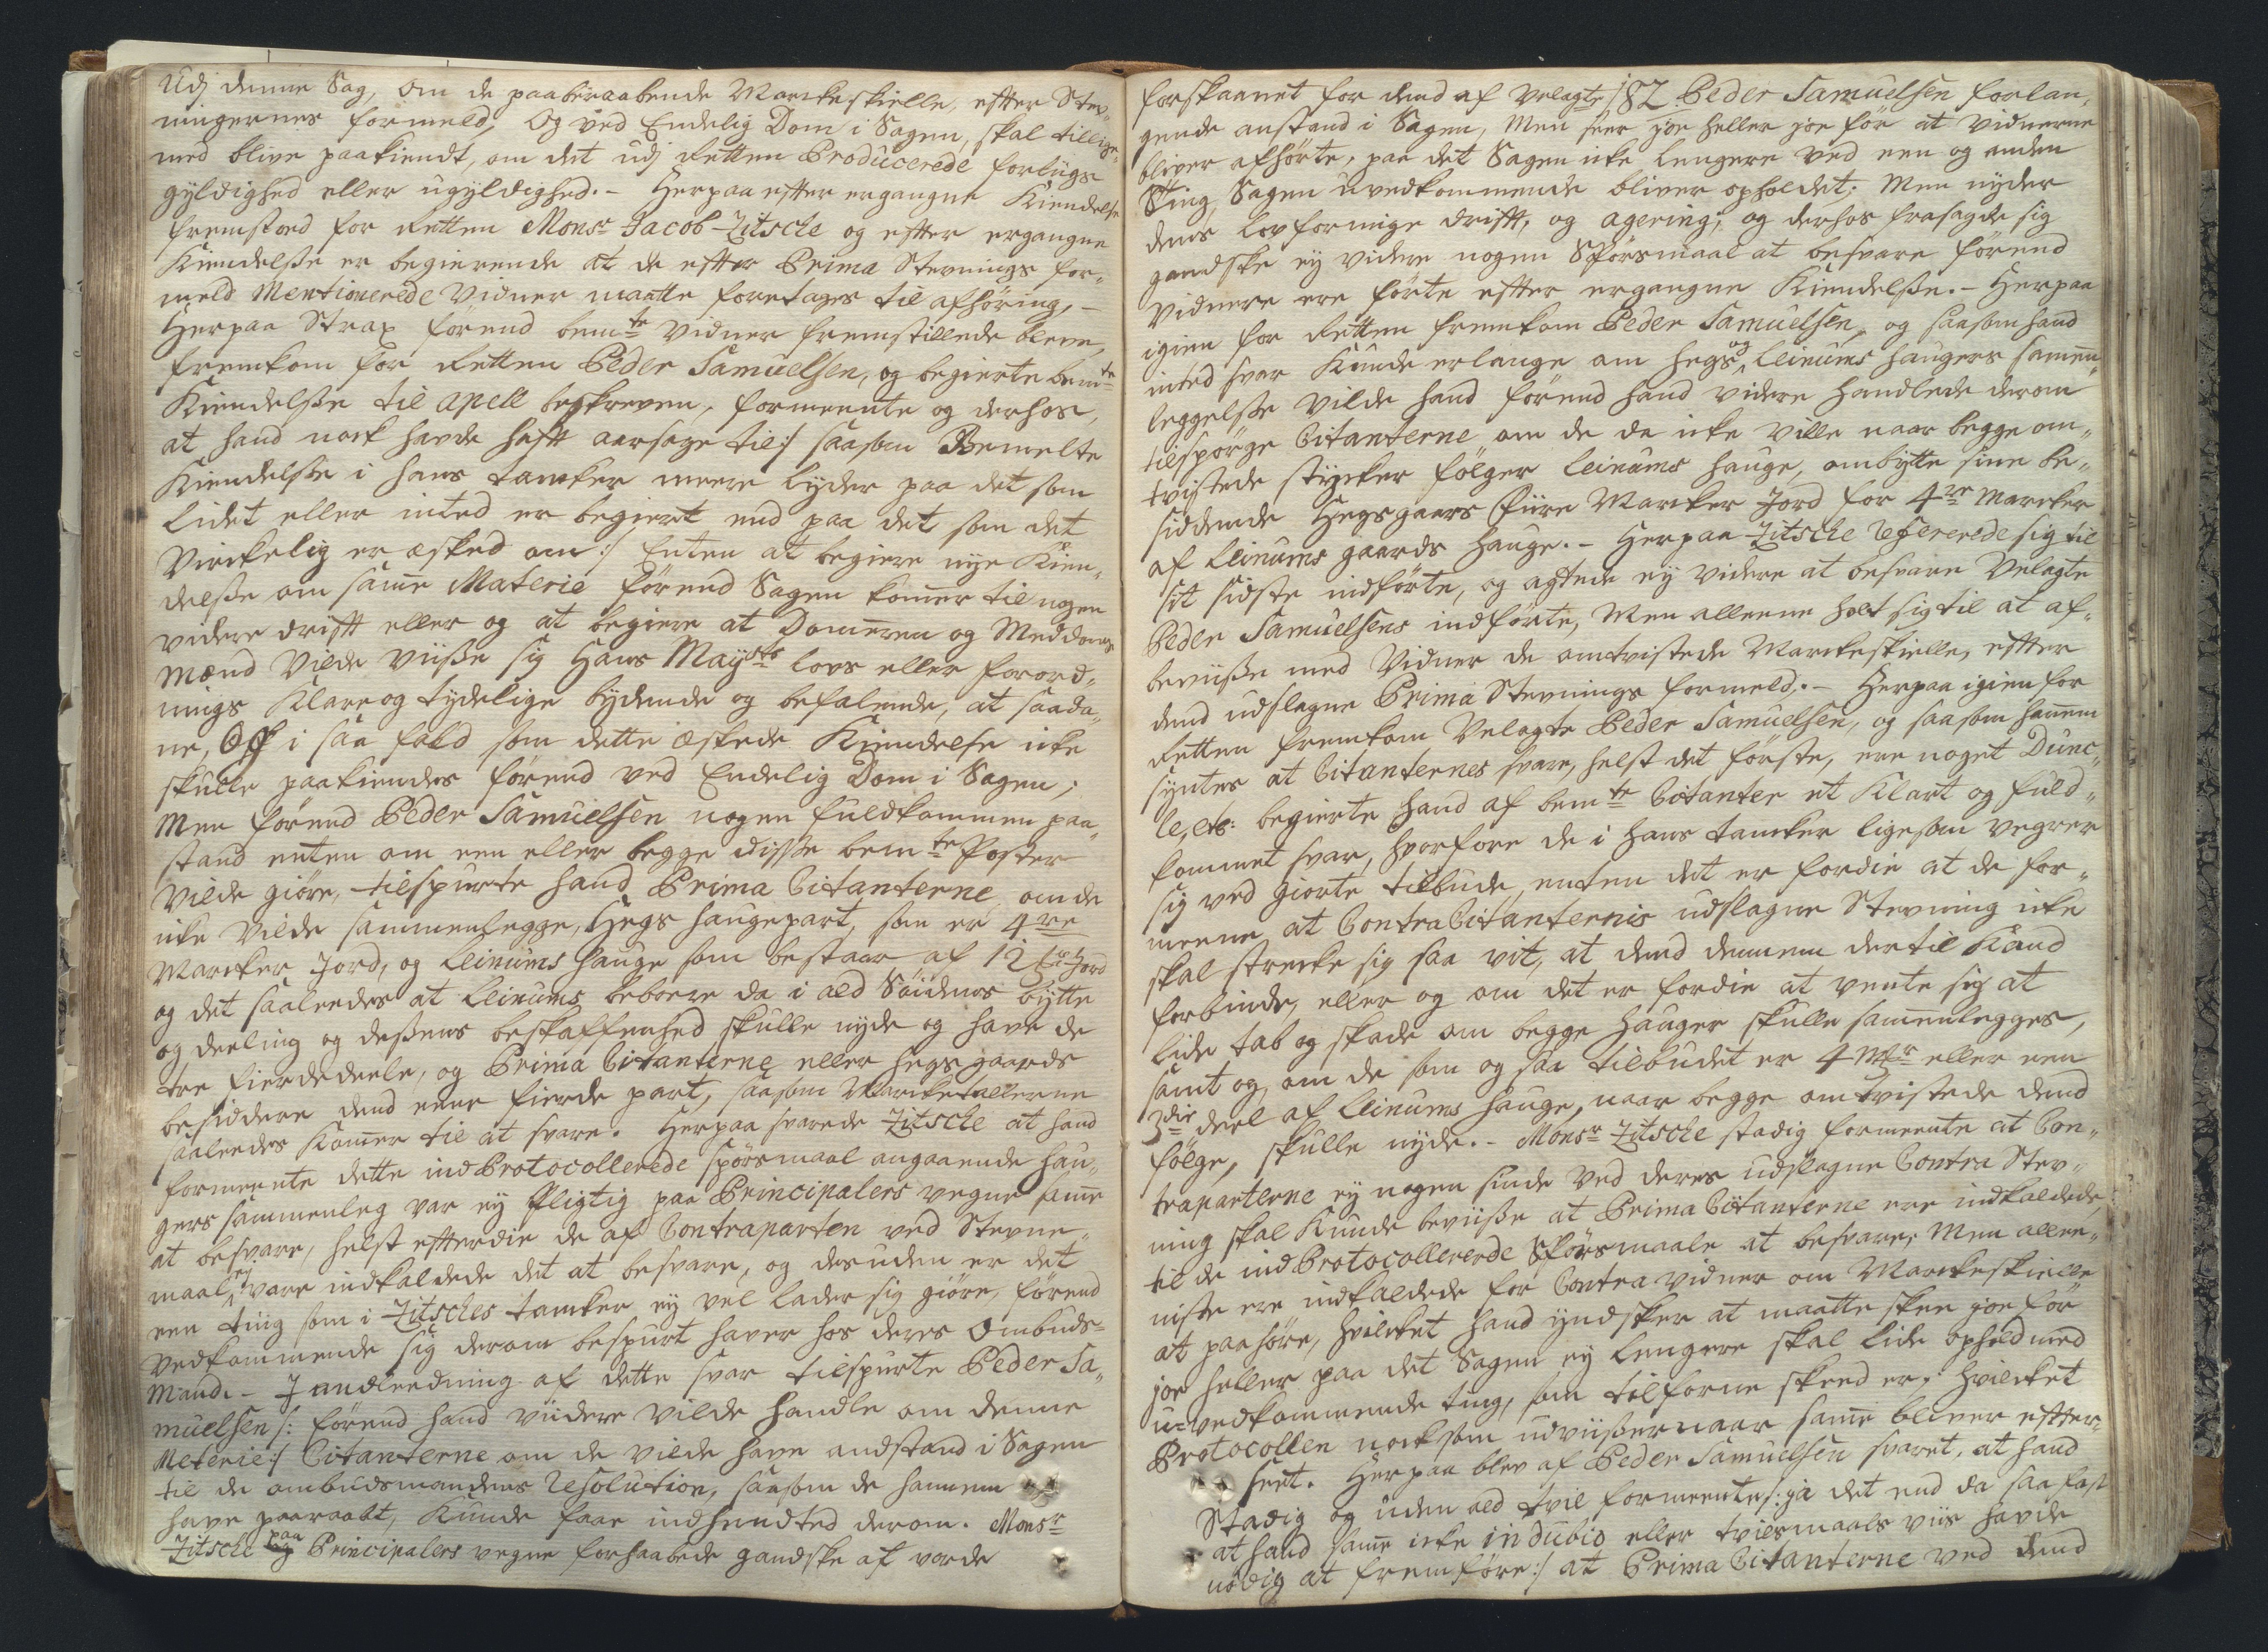 Udj denne Sag, om de paaberaabende Marckeskielle, efter Stev„
ningernes formeld, Og ved Endelig Dom i Sagen, skal tillige„
med blive paakiendt, om det udj Retten Producerede forligs
gyldighed eller ugyldighed. - Herpaa efter ergangne Kiendelse
fremstoed for Retten Monsr Jacob Zitscke og efter ergangne
Kiendelsße er begierende at de efter Prima Stevnings for„
meld Mentionerede Vidner maatte foretages til afhöring, -
Herpaa Strax förend bemte Vidner fremstillede bleve,
fremkom for Retten Peder Samuelsen, og begierte bemte
Kiendelsße til apell beskreven, formeente og derhos,
at hand nock havde hafft aarsage til :/ saasom Bemelte
Kiendelsße i hans tancker meere lyder paa det som
lidet eller inted er begiert end paa det som det
Virckelig er æsked om :/ Enten at begiere nye Kien„
delsße om samme Materie förend Sagen kommer til nogen
videre drifft eller og at begiere at Dommeren og Meddoms
Mænd Vilde viiße sig Hans Maysts lovs eller forord„
nings Klare og tydelige bydende og befalende, at saada„
ne, Og i saa fald som dette æskede Kiendelse icke
skulle paakiendes förend ved Endelig Dom i Sagen;
Men förend Peder Samuelsen nogen fuldkommen paa„
stand enten om een eller begge disße bemte Poster
Vilde giöre, tilspurte hand Prima Citanterne, om de
icke Vilde sammenlegge, Hegs haugepart, som er 4re
Marcker Jord, og Leinums hauge som bestaar af 12 Jord
og det saaleedes at Leinums beboere da i ald Söidnes bytte
og deeling og deßens beskaffenhed skulle nyde og have de
tre fierdedeele, og Prima Citanterne eller Hegs gaards
besiddere dend eene fierde part, saasom Marcketallerne
saaleedes kommer til at svare. Herpaa svarede Zitscke at hand
formeente dette ind Protocollerede spörsmaal angaaende hau„
gers sammenleg var ey Pligtig paa Principalers vegne samme
at besvare, helst efterdie de af Contraparten ved Stevne„
maal ej vare indkaldede det at besvare, og desuden er det
een ting som i Zitsckes tancker ey vel lader sig giöre, förend
vedkommende sig derom bespurt haver hos deres Ombuds=
Mand. - J andleedning af dette svar tilspurte Peder Sa„
muelsen /: förend hand viidere vilde handle om denne
Meterie :/ Citanterne om de vilde have andstand i Sagen
til de ombudsmandens Resolution, saasom de hannem
have paaraabt, kunde faae indhendted derom. Monsr
Zitscke paa Principalers vegne forhaabede gandske at vorde
forskaanet for dend af Velagte 182 Peder Samuelsen forlan„
gende anstand i Sagen, Men seer joe heller joe för at vidnerne
bliver afhörte, paa det Sagen icke lengere ved een og anden
Ting, Sagen uvedkommende bliver opholdet; Men nyder
dens lovformige drifft, og agering; og derhos frasagde sig
gandske ey videre nogen Spörsmaal at besvare förend
vidnere ere förte efter ergangne Kiendelsße. - Herpaa
igien for Retten fremkom Peder Samuelsen, og saasom hand
inted svar kunde erlange om Hegs og Leinums haugers samen„
leggelsße vilde hand förend hand videre handlede derom
tilspörge Citanterne om de da icke ville naar begge om„
tvistede stycker fölger Leinums hauge, ombytte sine be„
siddende Hegsgaars fiire Marcker Jord for 4re Marcker
af Leinums gaards hauge. - Herpaa Zitscke Refererede sig til
sit sidste indförte, og agtede ey videre at besvare Velagte
Peder Samuelsens indförte, Men alleene holt sig til at af„
beviiße med Vidner de omtvistede Marckeskielle, efter
dend udslagne Prima Stevnings formeld. - Herpaa igien for
Retten fremkom Velagte Peder Samuelsen, og saasom hannem
syntes at Citanternes svar, helst det förste, ere noget Dunc„
le, etc: begierte hand af bemte Citanter et Klart og fuld„
kommet svar, hvorfore de i hans tancker ligesom vegrer
sig ved giorte tilbude, enten det er fordie at de for„
meene at Contra Citanternis udslagne Stevning icke
skal strecke sig saa vit, at dend dennem dertil kand
forbinde, eller og om det er fordie at vente sig at
lide tab og skade om begge hauger skulle sammenlegges,
samt og, om de som og saa tilbudet er 4 Mkr eller een
3die deel af Leinums hauge, naar begge omtvistede dend
fölge, skulle nyde. - Monsr Zitscke stadig formeente at Con„
traparterne ey nogen sinde ved deres udslagne Contra Stev„
ning skal kunde beviiße at Prima Citanterne ere indkaldede
til de ind Protocollererde Spörsmaale at besvare, Men allee„
niste ere indkaldede for Contra vidner om Marckeskielle
at paahöre, hvilcket hand yndsker at maatte skee joe för
joe heller paa det Sagen ey lengere skal lide ophold med
u=vedkommende ting, som tilforne skeed er; hvilcket
Protocollen nocksom udviißer naar samme bliver efter„
seet. Herpaa blev af Peder Samuelsen svaret, at hand
Stadig og uden ald tvil formeente /: ja det end da saa fast
at hand samme icke in dubio eller tvilsmaals viis havde
nödig at fremföre :/ at Prima Citanterne ved dend